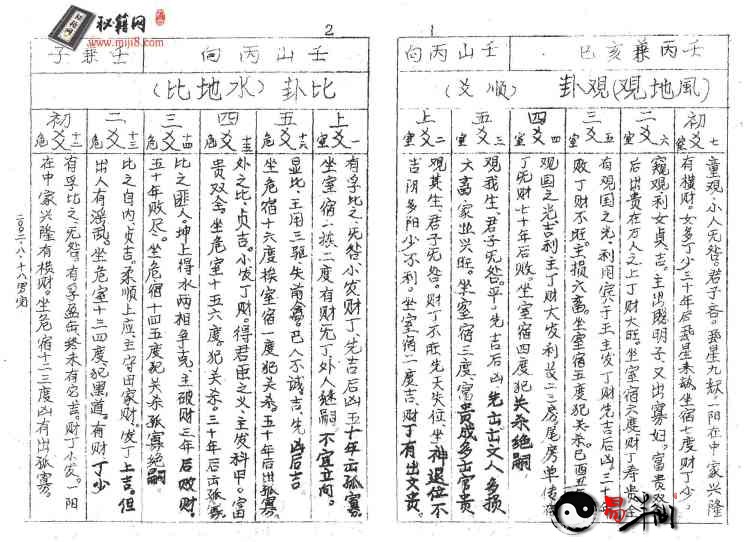 1
壬丙兼亥巳 壬山丙向
風地觀)觀卦 (順爻)
初爻 七
童观,小人无咎。君子吝。
有横财。女多丁少三十年后
坐宿七度财丁少。
二爻 室六
窥观利女贞,吉。
后出贵在万人之上丁财大旺。坐室宿六度财丁寿贵全
三爻 室五
有观国之光,利用宾于王主发丁财先吉后凶三十
败丁财不旺。主损六畜。坐室宿五度犯关杀。
四爻 室四
观国之光,吉,利主丁财大发利长二三房,尾房单传
丁死财七十年后败,坐室宿四度犯关杀绝嗣
五爻 室三
观我生,君子无咎。平,先吉后凶,先出文人多损
大畜家业兴旺。坐室宿三度,富贵成多出官贵
上爻 室二
观其生,君子无咎。财丁不旺先天失位坐神退位不
吉阴多阳少不利。坐室宿二度吉,财丁有出文贵。
2
壬兼子 壬山丙向
比卦(水地比)
上爻 室一
有孚比之,无咎,小发财丁,先吉后凶五十年出孤寡。
坐室宿一度二度有财无丁外人继嗣不宜立向。
五爻 危十六
显比,王用三驱失前禽。邑人不诫吉,先凶后吉
坐危宿十六度接室宿一度犯关杀。五十年后出孤寡。
四爻 危十五
外之比,贞吉。小发丁财得君臣之义,主发科甲。富
贵双全。坐危室十五六度。犯关杀。三十年后出孤寡。
三爻 危十四
比之匪人。坤上得水两相争克,主破财三年后败财。
五十年败尽。坐危宿十四五度犯关杀孤寡绝嗣
二爻 危十三
比之自内,贞吉。柔顺上应,主守田家财,发丁上吉。但
出人有淫乱。坐危室十三四度犯黑道。有财丁少
初爻 危十二
有孚比之无咎,有孚盈缶,终未有它吉。财丁小发。一阳
在中家兴隆有横财。坐危宿十二三度凶有出孤寡
秘籍网
www.miji8.com